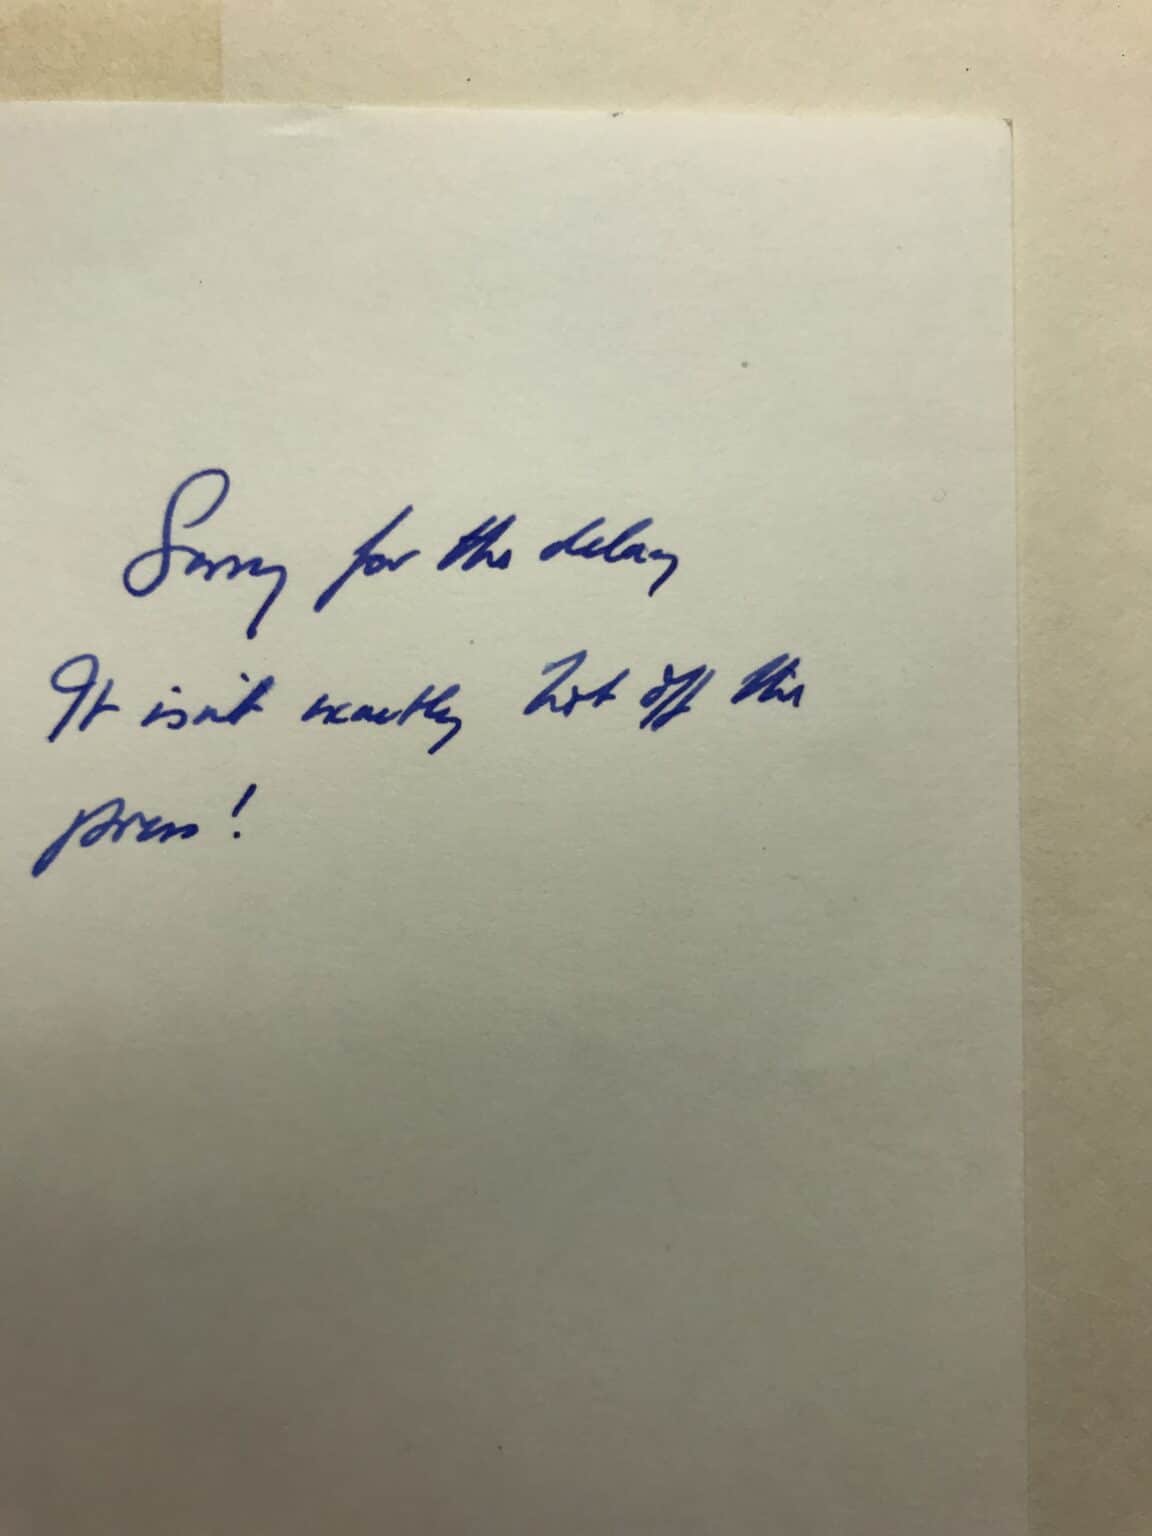 Sorry for the delay
It isn't exactly hot off the
press!